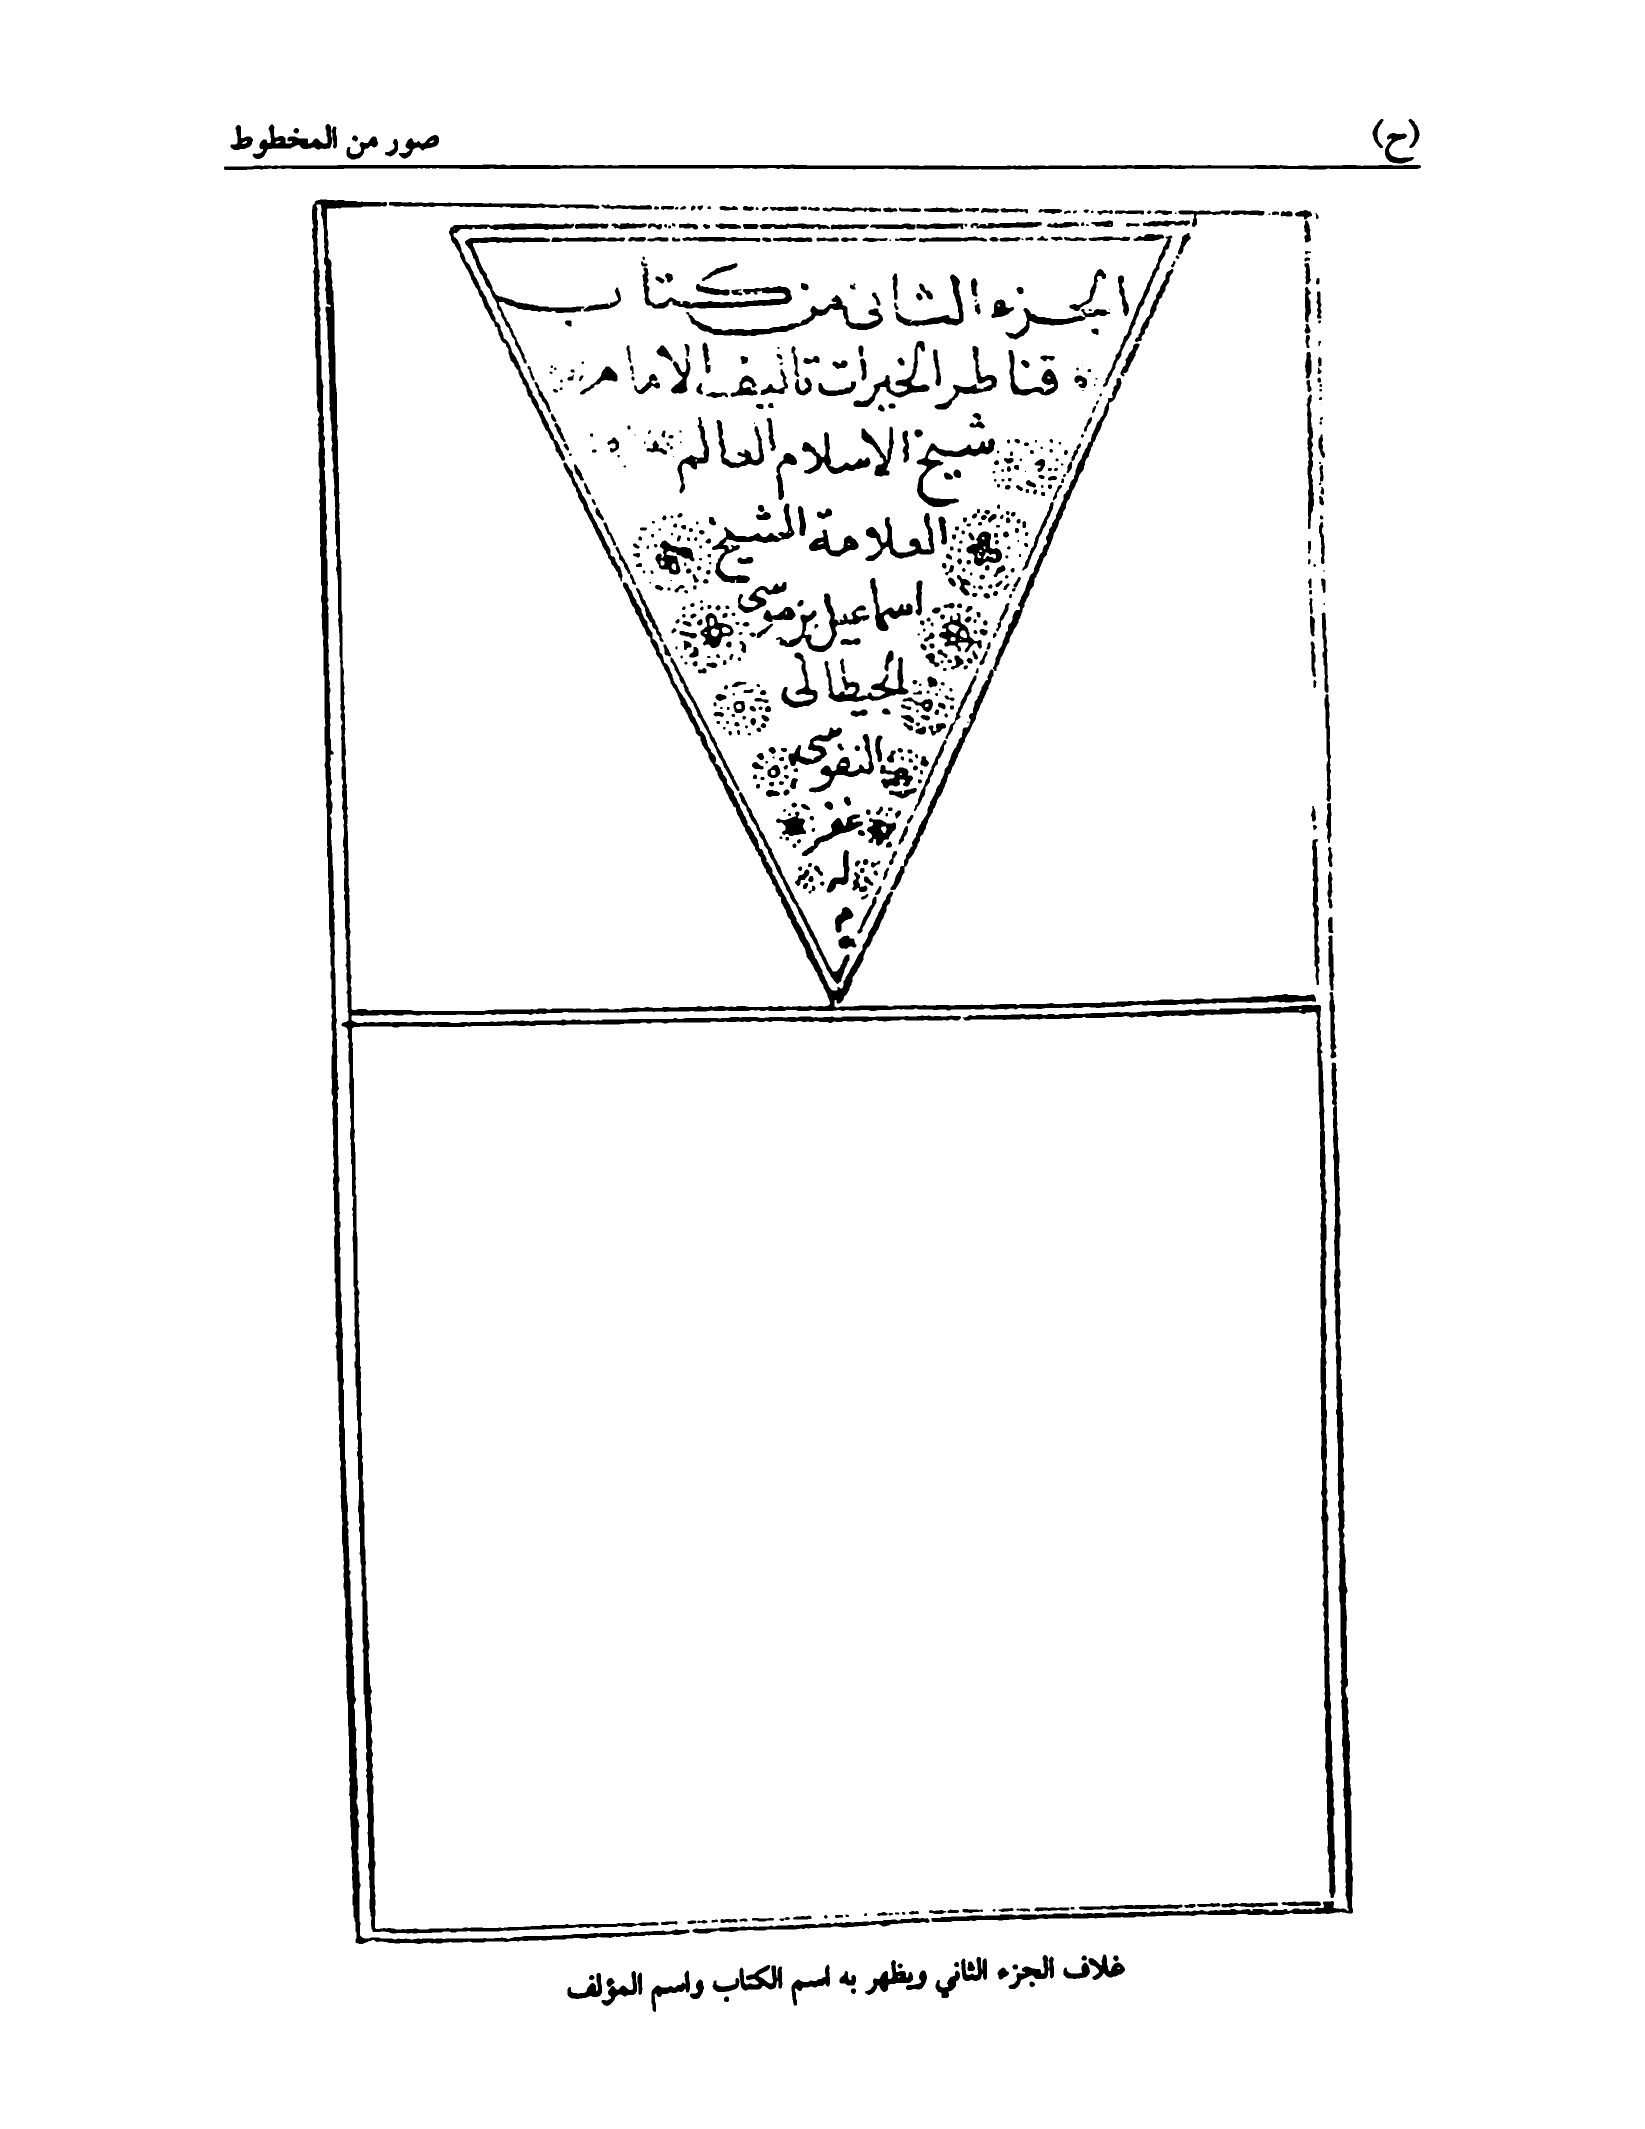 (ح) صور من المخطوط
الجزء الثاني من كتاب
قناطر الخيرات تاليف الامام
شيخ الاسلام العالم
العلامة الشيخ
اسماعيل بن موسى
الجيطالى
النفوسى
غفر
له
م
غلاف الجزء الثاني ويظهر به اسم الكتاب واسم المؤلف